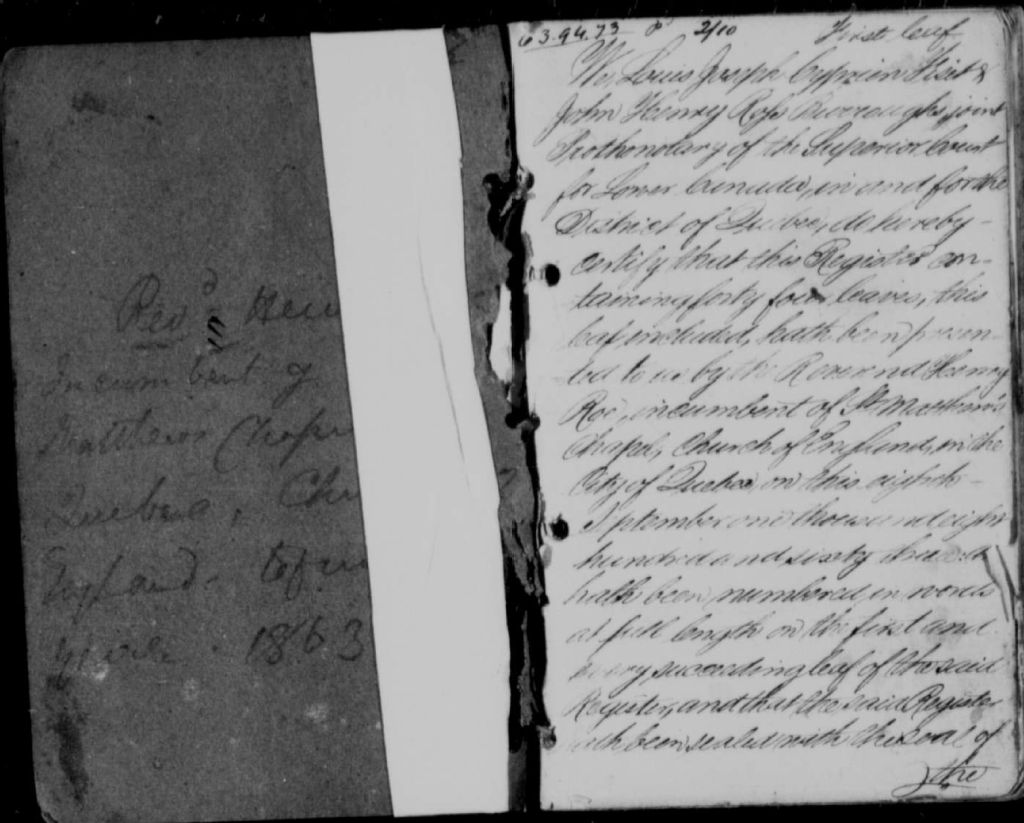 Rev.d Hen
Incumbent of
Matthews Chape
Quebec, Chu
England.
1863
63.94.73 P 2/10 First leaf
We, Louis Joseph Cyprien Fiset &
John Henry Ross Burroughs, joint
Prothonotary of the Superior Court
for Lower Canada, in and for the
District of Quebec, do hereby
certify that this Register con-
taining forty four leaves, this
leaf included, hath been presen-
ted to us by the Reverend Henry
Roe, incumbent of St. Matthew's
Chapel, Church of England, in the
City of Quebec, on this eighth
September one thousand eight
hundred and sixty three &
hath been numbered in words
at full length on the first and
every succeeding leaf of the said
Register, and that the said Register
hath been sealed with the seal of
the